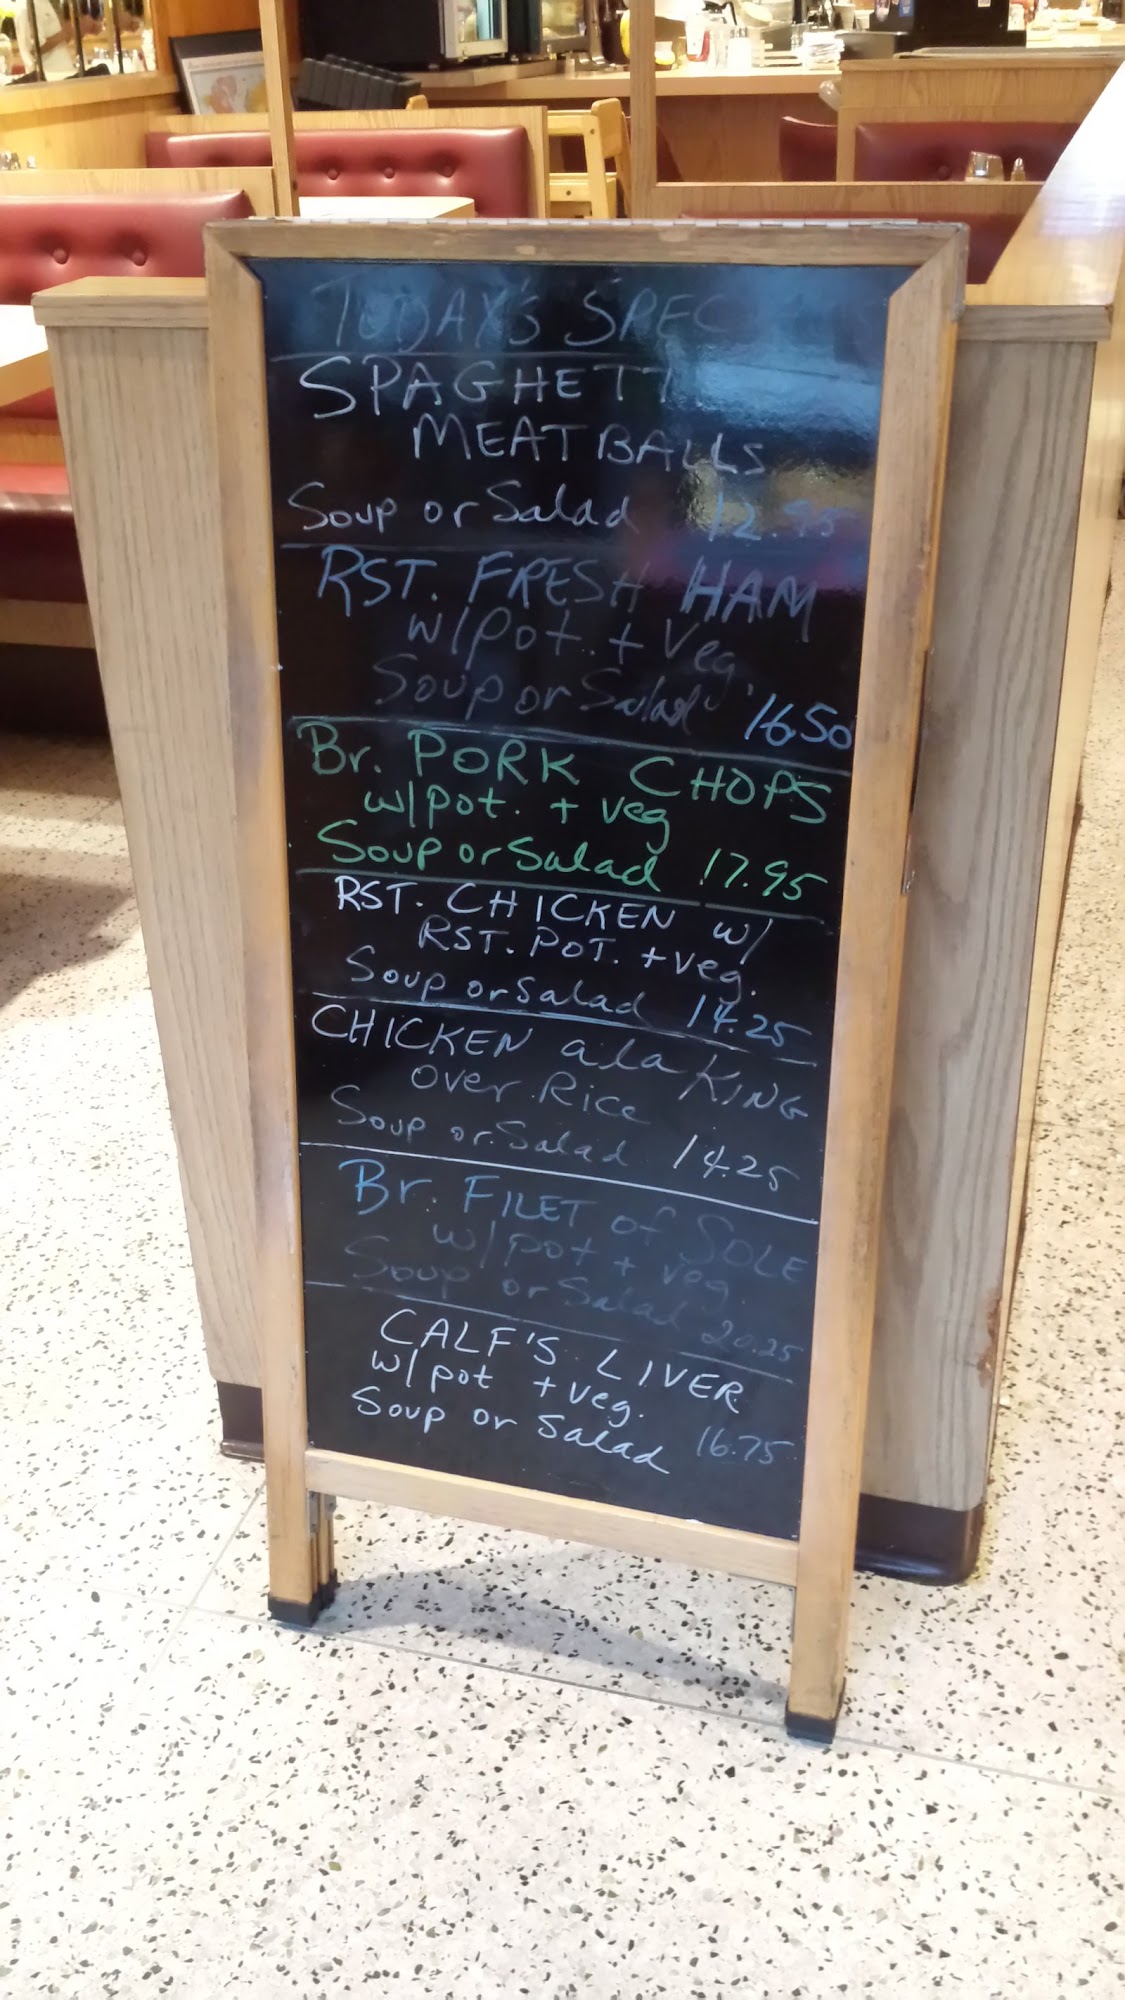 TODAY'S SPEC
SPAGHETTI
MEATBALLS
Soup or Salad 12.95
RST. FRESH HAM
w/pot. + Veg.
Soup or Salad 16.50
Br. PORK CHOPS
w/pot. + veg
Soup or Salad 17.95
RST. CHICKEN w/
RST. POT. + veg.
Soup or Salad 14.25
CHICKEN a la KING
over Rice
Soup or Salad 14.25
Br. FILET of SOLE
w/pot + veg.
Soup or Salad 20.25
CALF'S LIVER
w/pot + veg.
Soup or Salad 16.75